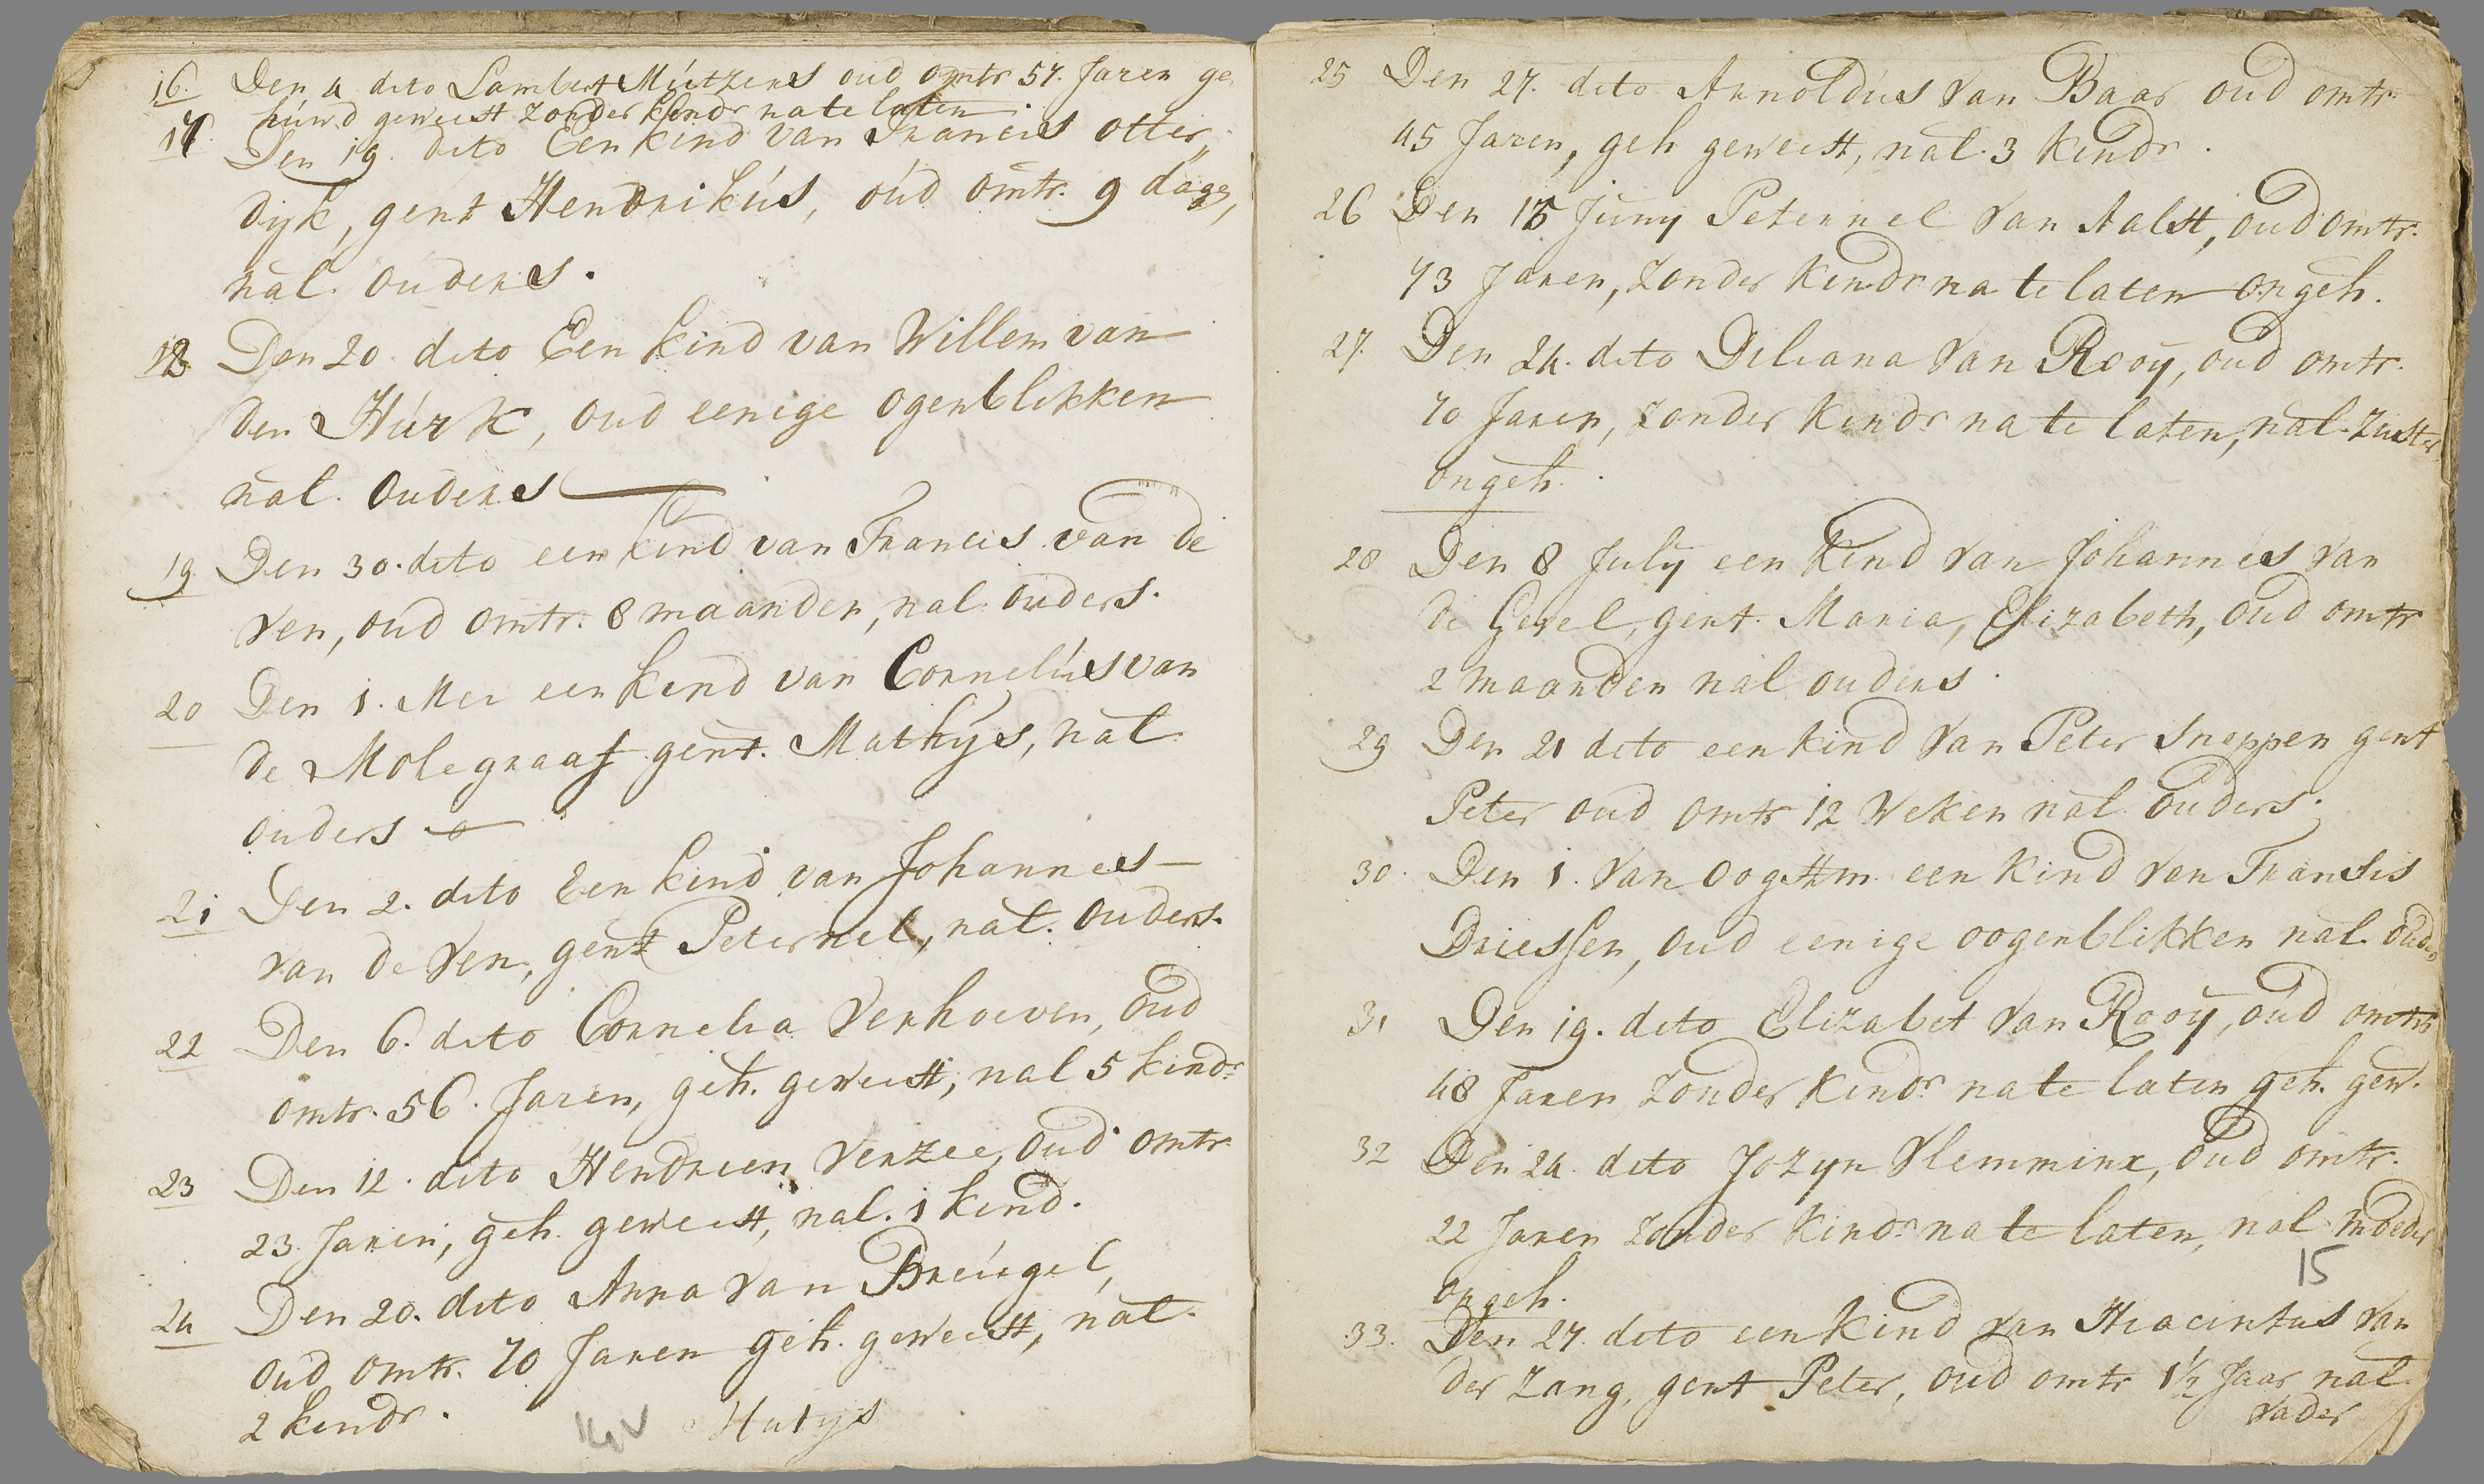 16. Den 4 dito Lambert Mutzers oud omtr 57. Jaren ge
huwd geweest zonder kindr na te laten
17 Den 19. dito Een kind van Francis otter„
dijk, gent Hendrikus, oud omtr. 9 dage,
nal. ouders.
18 Den 20. dito Een kind van Willem van
den Hurk, oud eenige ogenblikken
nal. ouders
19 Den 30. dito een kind van Francis van de
Ven, oud omtr. 8 maanden, nal. ouders.
20 Den 1. Mei een kind van Cornelius van
de Molegraaf gent. Mathijs, nal.
ouders
21 Den 2. dito Een kind van Johannes
van de Ven, gent Peternel, nal. ouders.
22 Den 6. dito Cornelia Verhoeven, oud
omtr. 56. Jaren, geh. geweest, nal 5 kindr
23 Den 12. dito Hendrien Verzee, oud omtr.
23 Jaren, geh. geweest, nal. 1 kind.
24 Den 20. dito Anna van Breugel,
oud omtr. 70 Jaren geh. geweest, nal.
2 kindr.
14V Matys
25 Den 27. dito Arnoldus van Baar oud omtr.
45 Jaren, geh geweest, nal. 3 kindr.
26 Den 15 Juny Peternel van Aalst, oud omtr.
73 Jaren, zonder kindr na te laten ongeh.
27. Den 24. dito Deliana van Rooÿ, oud omtr.
70 Jaren, zonder kindr na te laten, nal. Zuster
ongeh.
28 Den 8 July een kind van Johannes van
de Gevel, gent. Maria, Elizabeth, oud omtr
2 maanden nal ouders.
29 Den 21 dito een kind van Peter Sneppen gent
Peter oud omtr 12 Weken nal ouders.
30. Den 1. van oogstm. een kind van Fransis
Driessen, oud eenige oogenblikken nal. ouders
31 Den 19. dito Elizabet van Rooÿ, oud omtr
48 Jaren zonder kindr na te laten geh. gew.
32 Den 24. dito Jozyn Vlemminx, oud omtr.
22 Jaren zonder kindr na te laten, nal moeder
ongeh.
15
33. Den 27. dito een kind van Hiacintus van
der Zang, gent Peter, oud omtr 1½ Jaar nal.
vader